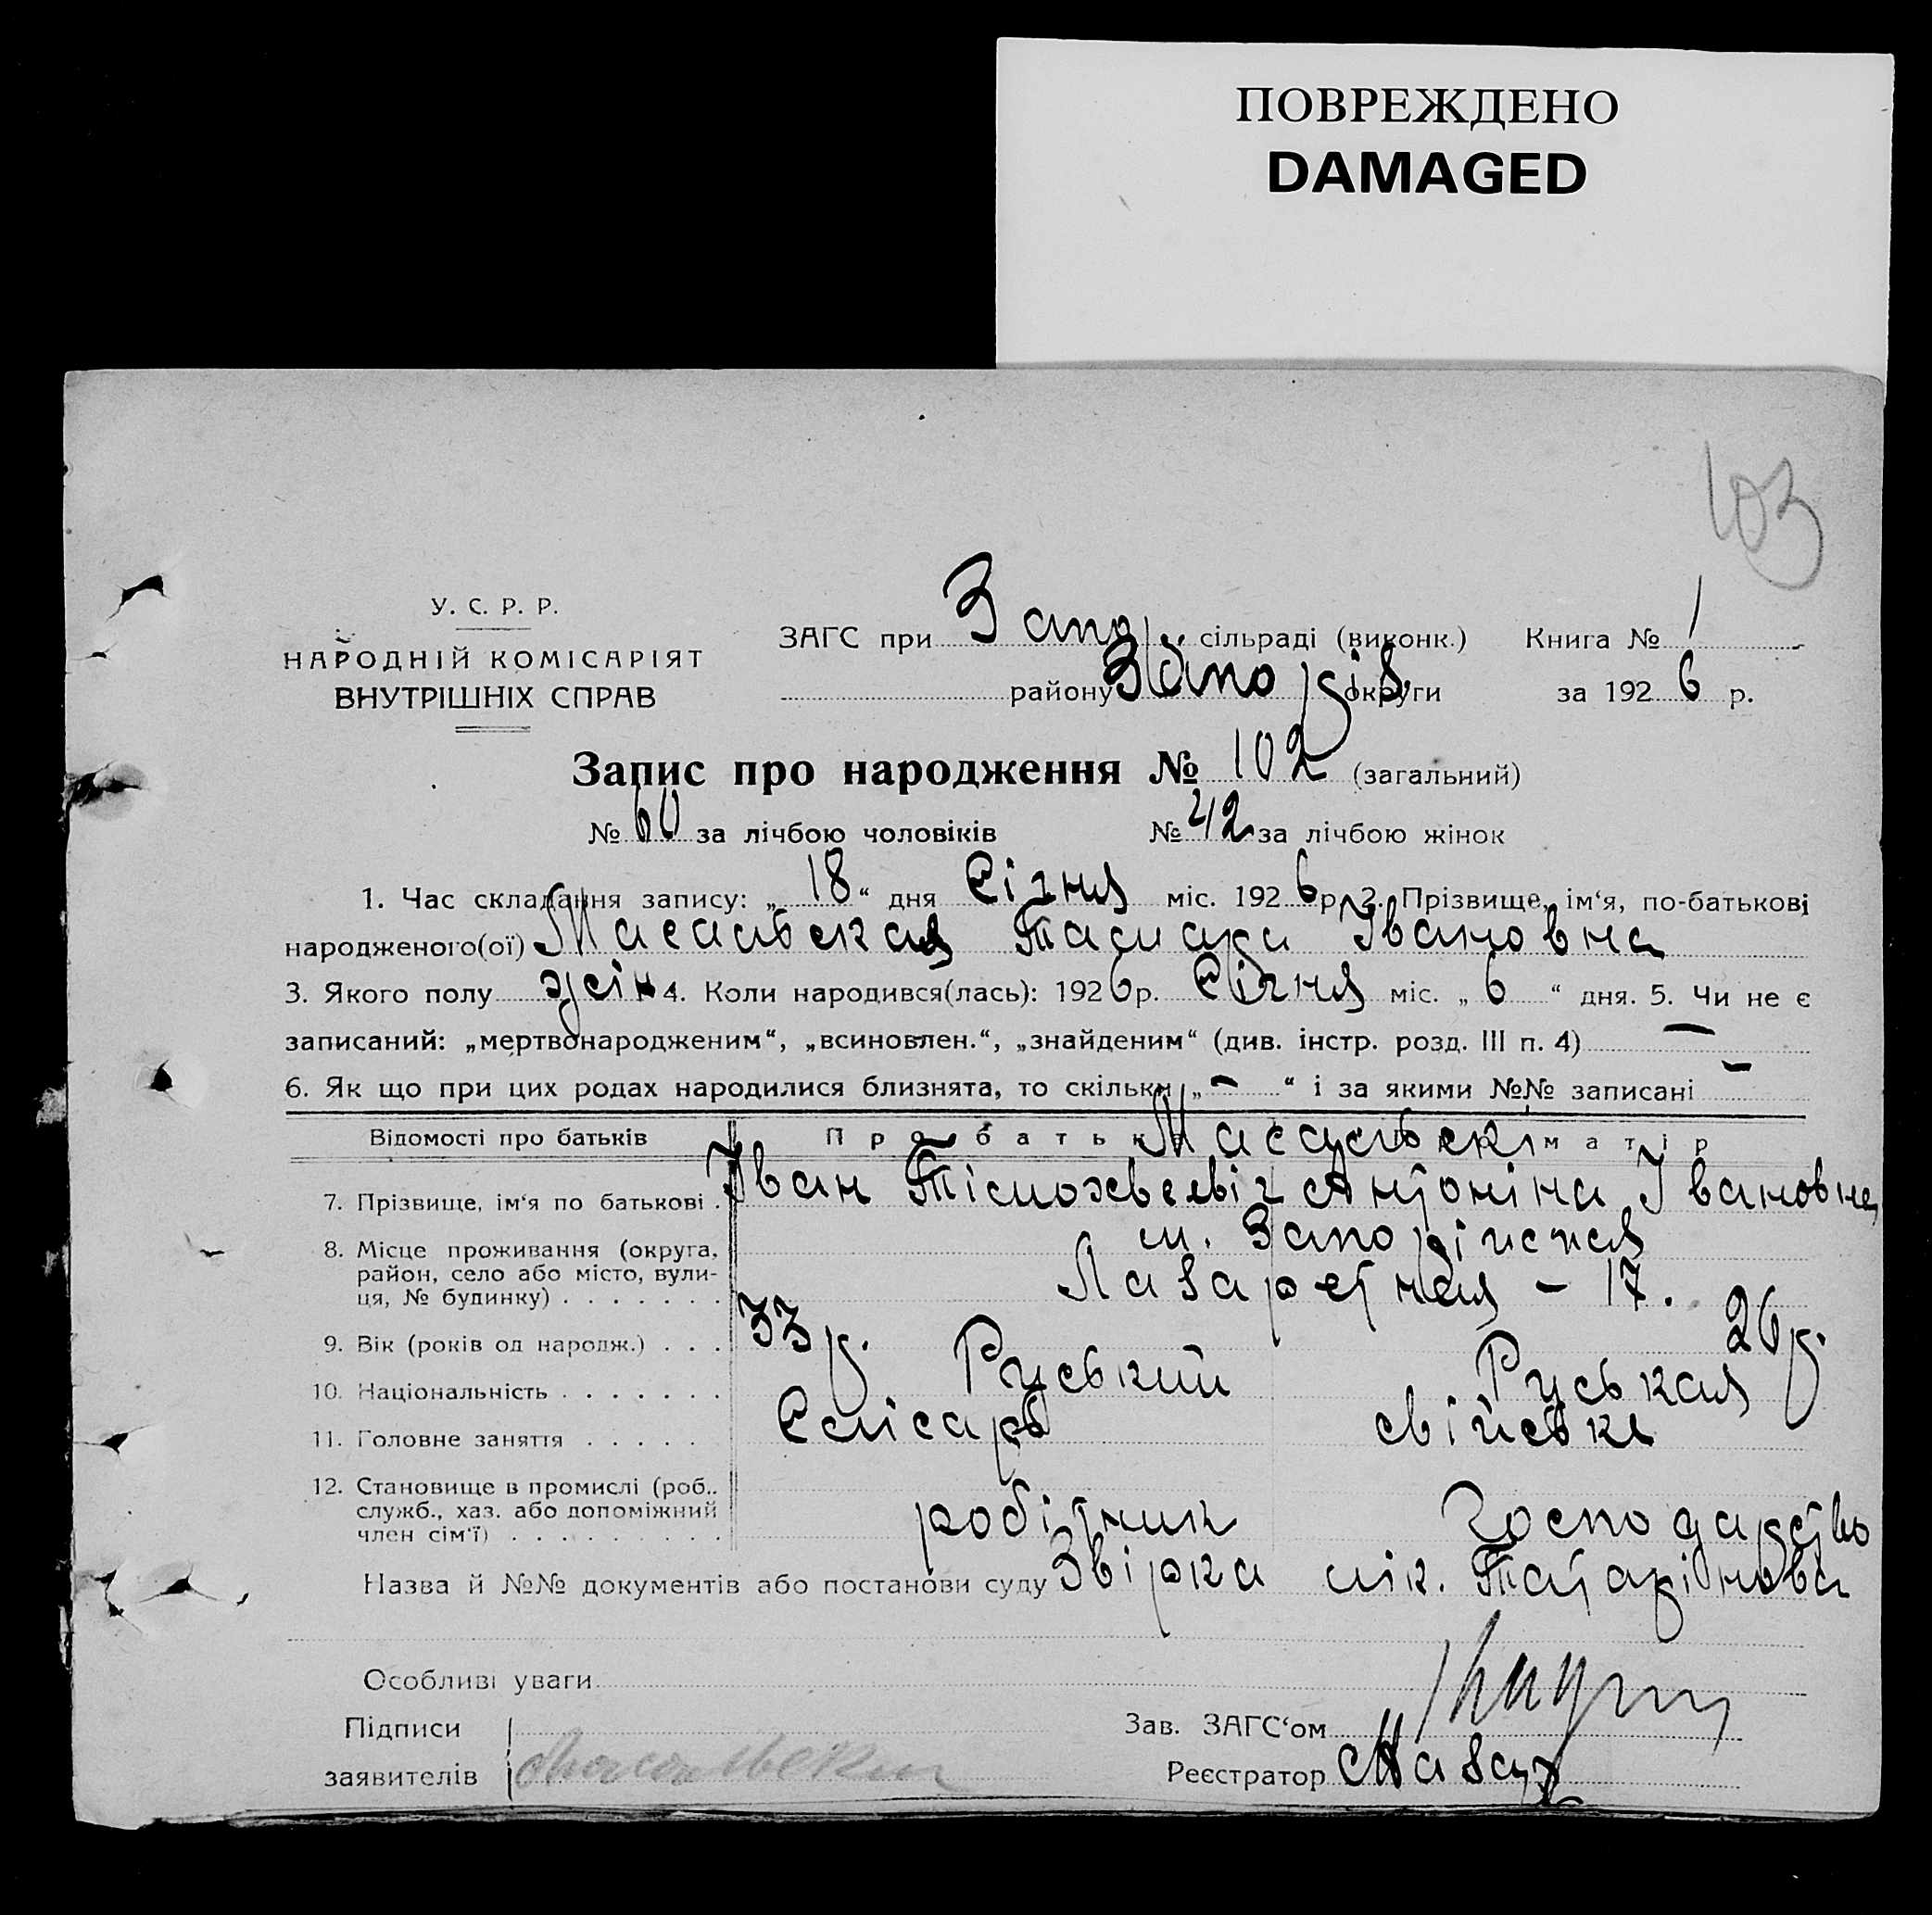 ПОВРЕЖДЕНО
DAMAGED
103
У. С. Р. Р.
НАРОДНІЙ КОМІСАРІЯТ
ВНУТРІШНІХ СПРАВ
ЗАГС при Запор. сільраді (виконк.) Книга № 1
району Запоріз округи за 1926 р.
Запис про народження № 102 (загальний)
№ 60 за лічбою чоловіків № 42 за лічбою жінок
1. Час складання запису: „18“ дня Січня міс. 1926 р. 2. Прізвище, ім‘я, по-батькові
народженого(ої) Масальская Тамара Івановна
3. Якого полу жін 4. Коли народився(лась): 1926 р. Січня міс. „6“ дня. 5. Чи не є
записаний: „мертвонародженим“, „всиновлен.“, „знайденим“ (див. інстр. розд. III п. 4) —
6. Як що при цих родах народилися близнята, то скільки „—“ і за якими №№ записані —
Відомості про батьків Про батька Масальскі матір
7. Прізвище, ім‘я по батькові . Іван Тімохвеевіч Антоніна Івановна
8. Місце проживання (округа, район, село або місто, вулиця, № будинку) м. Запоріжжя
Лазаретная – 17.
9. Вік (років од народж.) . . . 33 р. 26 р.
10. Національність Руський Руськая
11. Головне заняття Слісарь свійське
12. Становище в промислі (роб.. служб., хаз. або допоміжний член сім‘ї) робітник господарство
Назва й №№ документів або постанови суду Звірка лік. Татарінова
Особливі уваги
Підписи Зав. ЗАГС‘ом
заявителів Масальский Реєстратор Назар